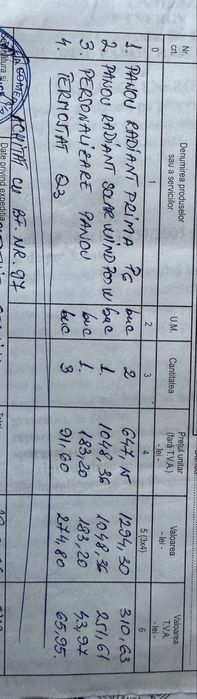 Nr. crt. Denumirea produselor sau a serviciilor U.M. Cantitatea Prețul unitar (fără T.V.A.) - lei - Valoarea - lei - Valoarea T.V.A. - lei -
0 1 2 3 4 5 (3x4) 6
1. PANOU RADIANT PRIMA PG buc 2 647,15 1294,30 310,63
2 PANOU RADIANT SOLAR WIND 700W buc 1 1048,36 1048,36 251,61
3. PERSONALIZARE PANOU buc 1. 183,20 183,20 43,97
4. TERMOSTAT Q3 buc 3 91,60 274,80 65,95.
ACHITAT CU BF. NR. 97
Date privind expediția